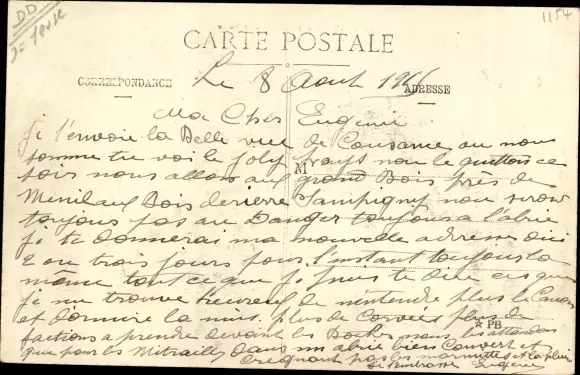 DD
1154
CARTE POSTALE
CORRESPONDANCE
ADRESSE
Le 8 Aout 19
Ma Cher Eugénie
je t'envoie la Belle vue de Cousance ou nous
somme tu voi le joly pays nou le quittons ce
soir nous allons au grand Bois près de
Menil aux Bois derierre Sampigny nou seron
toujours pas au Danger toujours a l'abrie
je te donnerai ma nouvelle adresse dici
2 ou trois jours pour l'instant toujours la
même tout ce que je puis te dire ces que
je me trouve heureux de mentendre plus le Canon
et dormire la nuit. plus de Corvées plus de
factions a prendre devant les Boches nous les attendons
que pour les Mitrailles dans un abrie bien Couvert et
M
PB
Creignant pas les marmittes et la pluie
Eugène